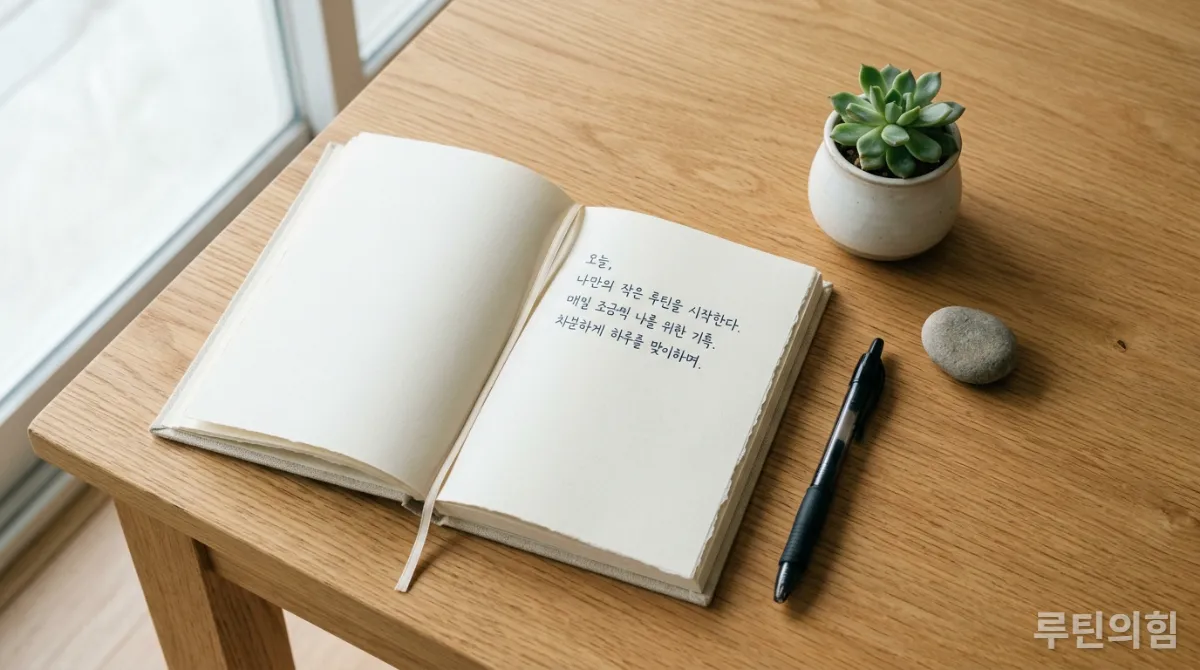 오늘,
나만의 작은 루틴을 시작한다.
매일 조금씩 나를 위한 기록.
차분하게 하루를 맞이하며.
루틴의힘